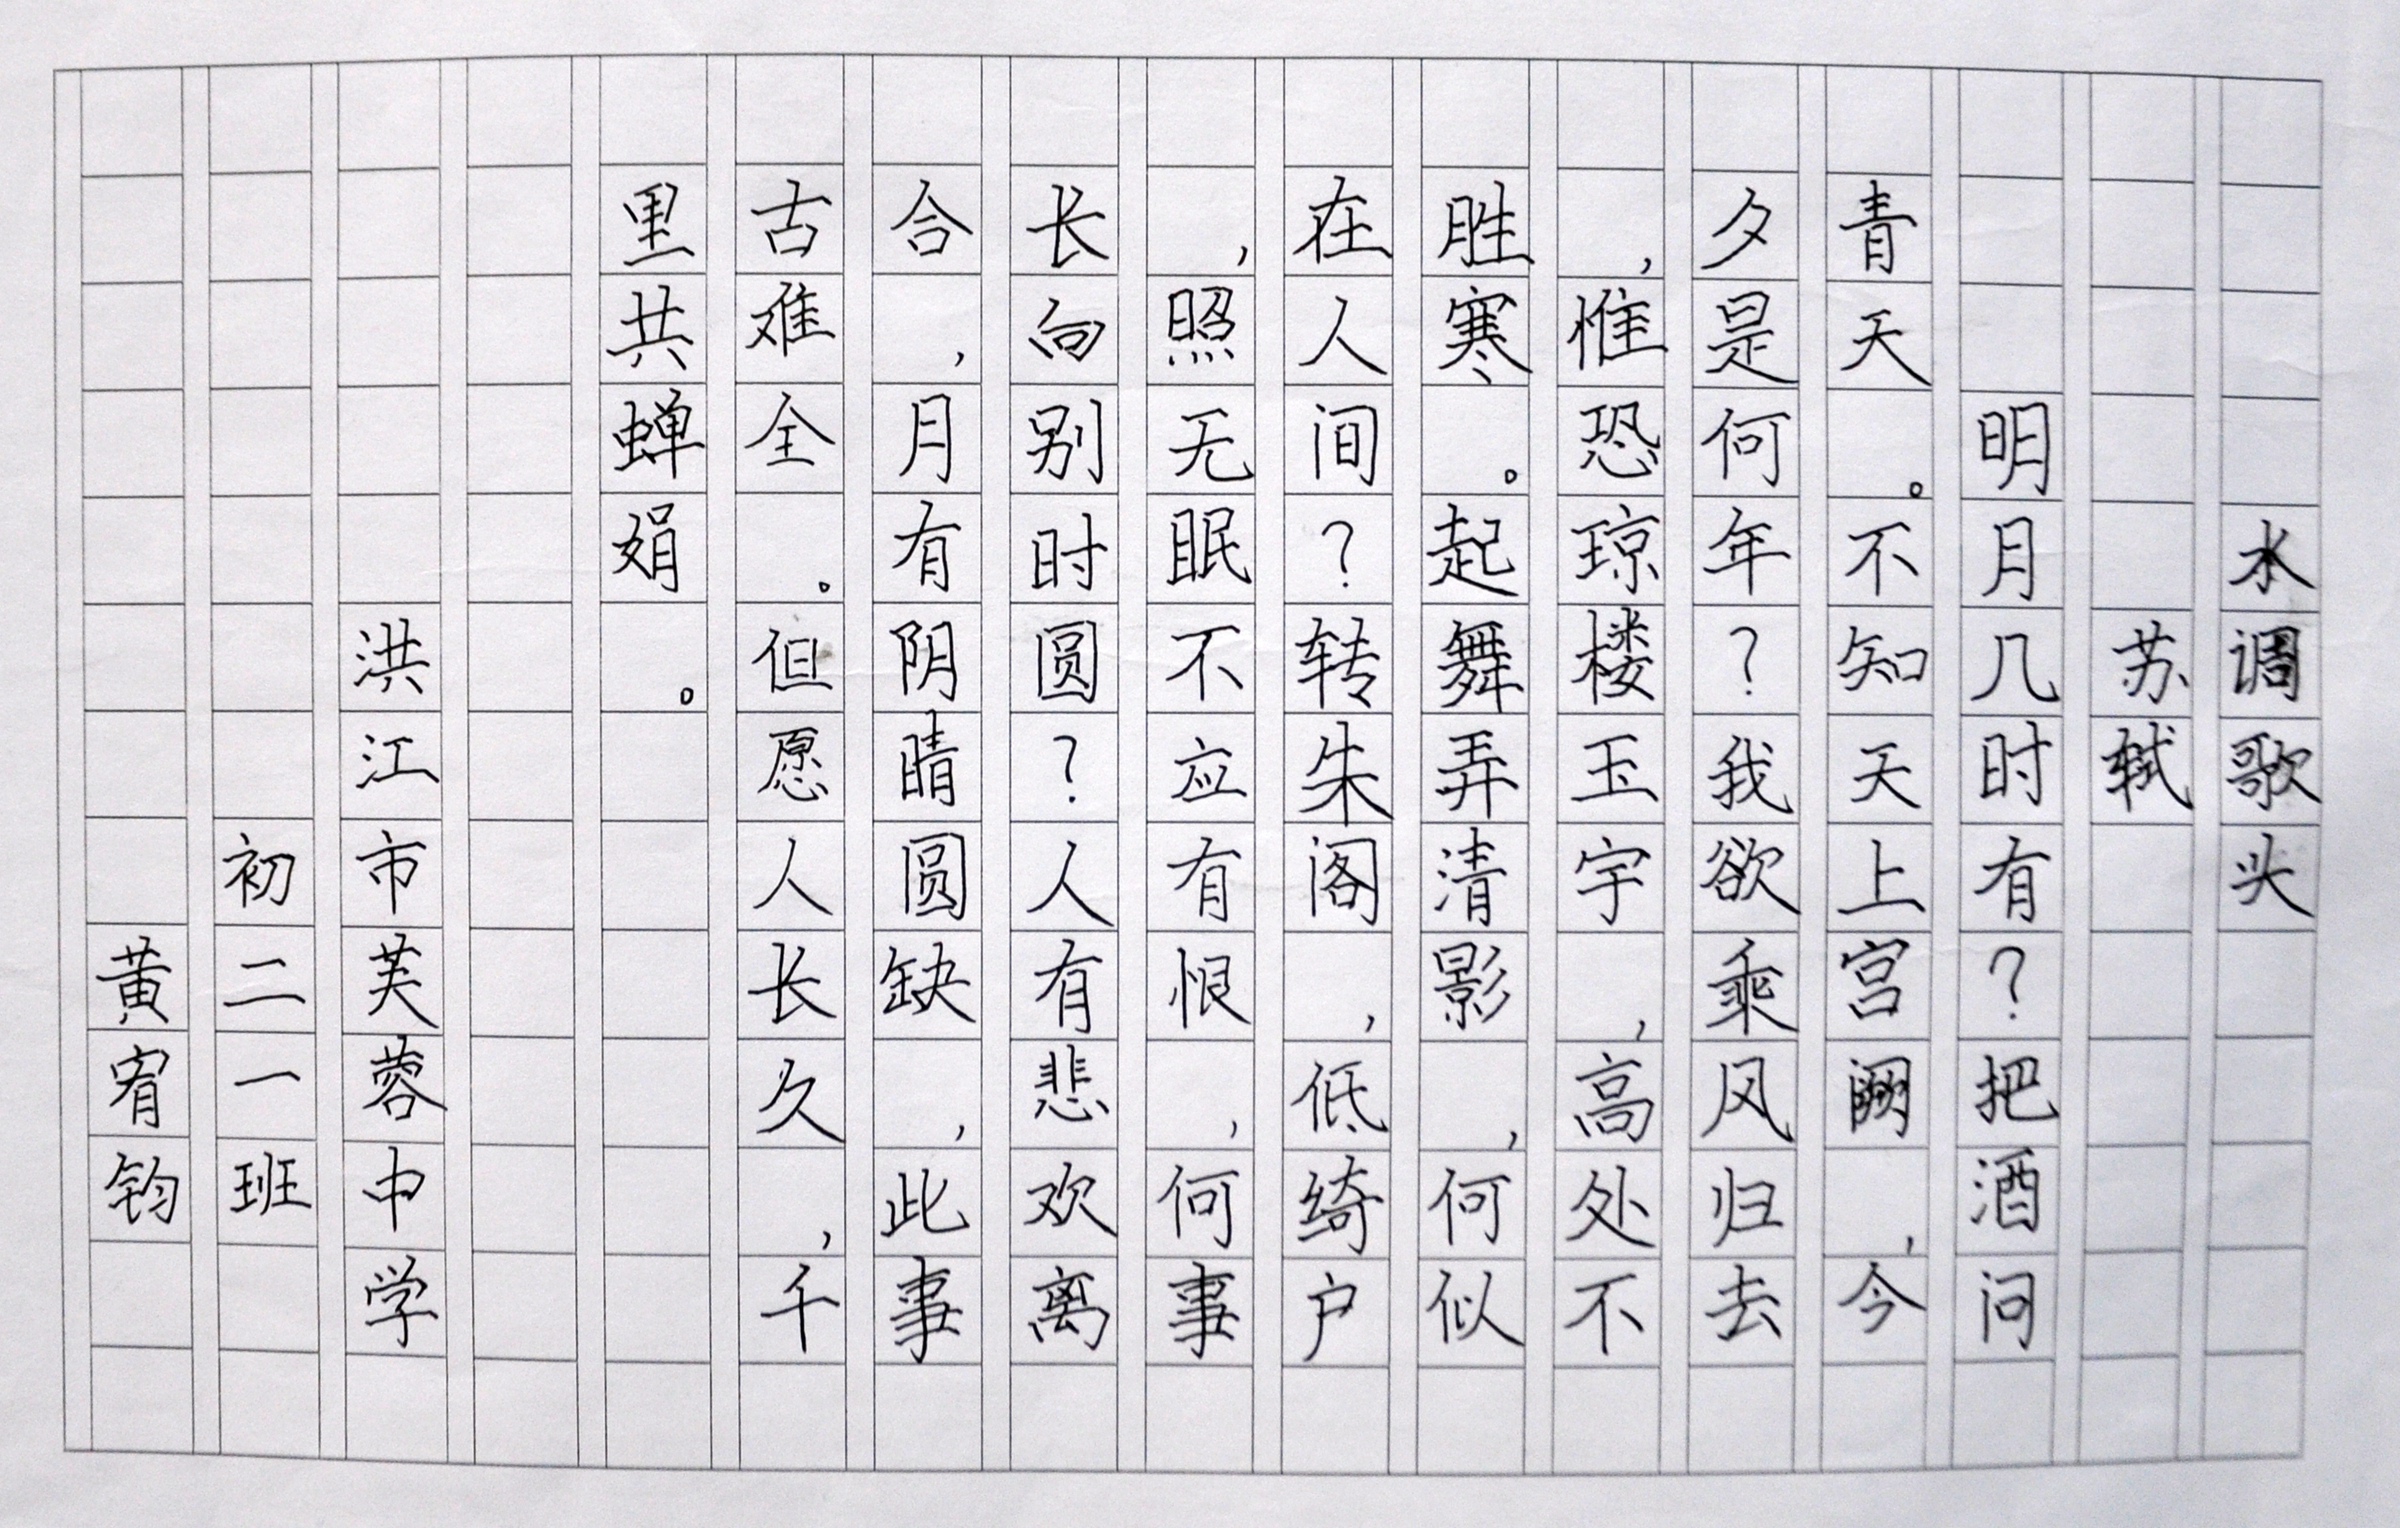 水调歌头
苏轼
明月几时有?把酒问
青天。不知天上宫阙,今
夕是何年?我欲乘风归去
,惟恐琼楼玉宇,高处不
胜寒。起舞弄清影,何似
在人间?转朱阁,低绮户
,照无眠不应有恨,何事
长向别时圆?人有悲欢离
合,月有阴晴圆缺,此事
古难全。但愿人长久,千
里共蝉娟。
洪江市芙蓉中学
初二一班
黄宥钧